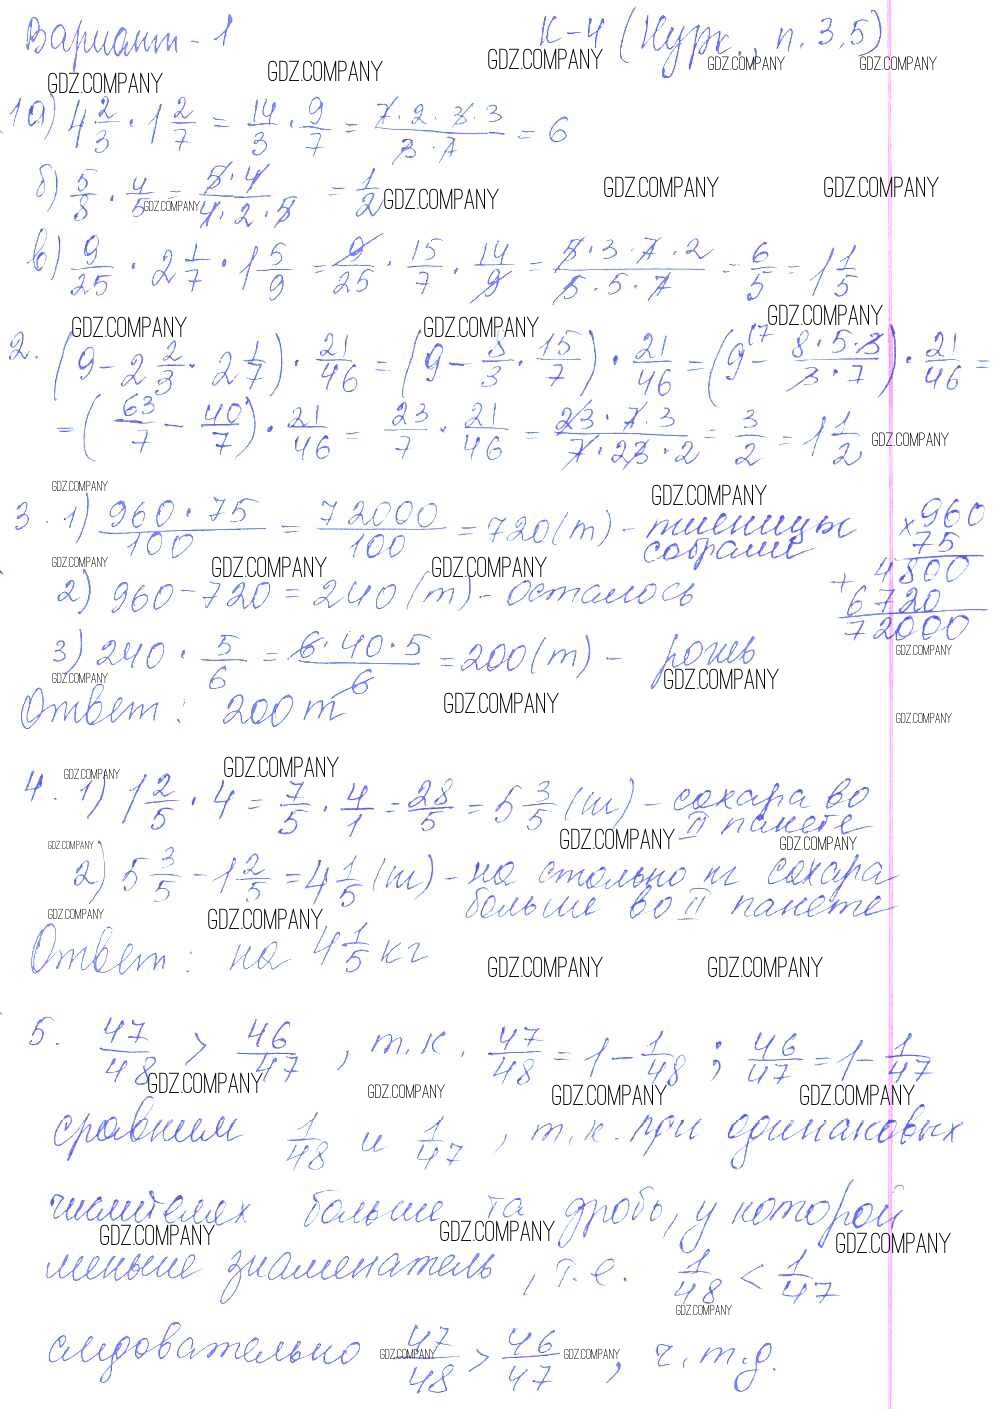 Вариант - 1 К-4 (Нурк., п. 3,5)
GDZ.COMPANY GDZ.COMPANY GDZ.COMPANY GDZ.COMPANY GDZ.COMPANY
1 а) 4 2/3 · 1 2/7 = 14/3 · 9/7 = 7·2·3·3 / 3·7 = 6
б) 5/8 · 4/5 = 5·4 / 4·2·5 = 1/2
GDZ.COMPANY GDZ.COMPANY GDZ.COMPANY GDZ.COMPANY
в) 9/25 · 2 1/7 · 1 5/9 = 9/25 · 15/7 · 14/9 = 5·3·7·2 / 5·5·7 = 6/5 = 1 1/5
GDZ.COMPANY GDZ.COMPANY GDZ.COMPANY
2. (9 - 2 2/3 · 2 1/7) · 21/46 = (9 - 8/3 · 15/7) · 21/46 = (9 - 8·5·3 / 3·7) · 21/46 =
= (63/7 - 40/7) · 21/46 = 23/7 · 21/46 = 23·7·3 / 7·23·2 = 3/2 = 1 1/2
GDZ.COMPANY
GDZ.COMPANY GDZ.COMPANY
3. 1) 960·75 / 100 = 72000/100 = 720 (т) - пшеницы
собрали
× 960
75
4800
+ 6720
72000
GDZ.COMPANY GDZ.COMPANY GDZ.COMPANY
2) 960 - 720 = 240 (т) - осталось
3) 240 · 5/6 = 6·40·5 / 6 = 200 (т) - рожь
GDZ.COMPANY GDZ.COMPANY GDZ.COMPANY
Ответ: 200 т
GDZ.COMPANY GDZ.COMPANY
GDZ.COMPANY GDZ.COMPANY
4. 1) 1 2/5 · 4 = 7/5 · 4/1 = 28/5 = 5 3/5 (кг) - сахара во
II пакете
GDZ.COMPANY GDZ.COMPANY GDZ.COMPANY
2) 5 3/5 - 1 2/5 = 4 1/5 (кг) - на столько кг сахара
больше во II пакете
GDZ.COMPANY GDZ.COMPANY
Ответ: на 4 1/5 кг
GDZ.COMPANY GDZ.COMPANY
5. 47/48 > 46/47, т.к. 47/48 = 1 - 1/48; 46/47 = 1 - 1/47
GDZ.COMPANY GDZ.COMPANY GDZ.COMPANY GDZ.COMPANY
сравним 1/48 и 1/47, т.к. при одинаковых
числителях больше та дробь, у которой
GDZ.COMPANY GDZ.COMPANY GDZ.COMPANY
меньше знаменатель, т.е. 1/48 < 1/47
GDZ.COMPANY
следовательно 47/48 > 46/47, ч.т.д.
GDZ.COMPANY GDZ.COMPANY